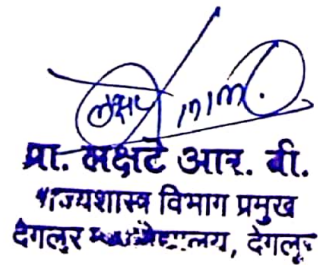 प्रा. लक्षटे आर. बी.
राज्यशास्त्र विभाग प्रमुख
देगलुर महाविद्यालय, देगलुर